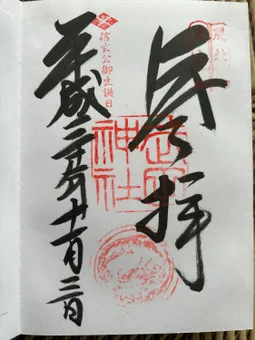 奉拝
武田
神社
信玄公御生誕日
平成二十五年十一月三日